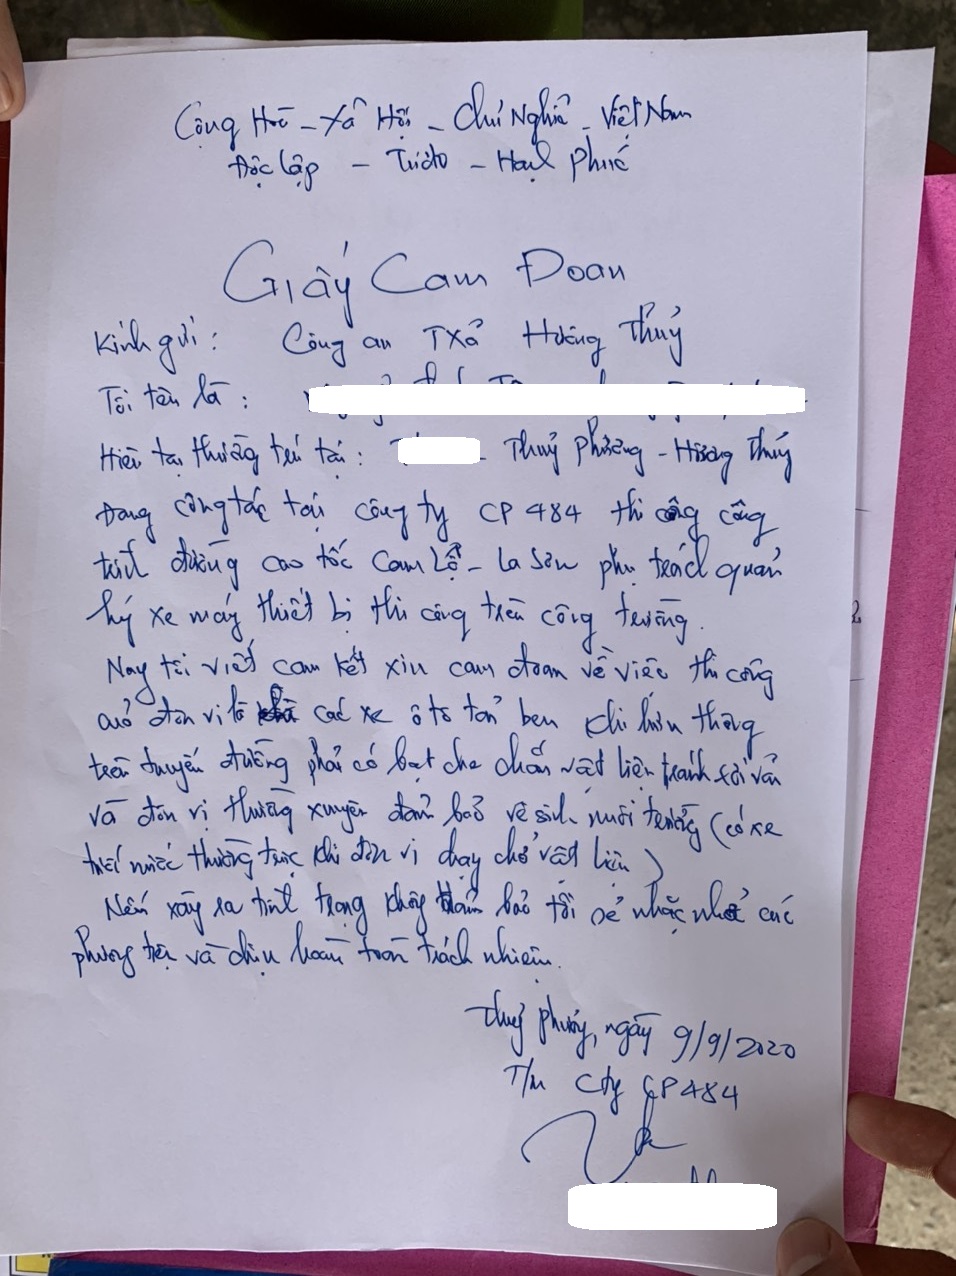 Cộng Hoà - Xã Hội - Chủ Nghĩa - Việt Nam
Độc lập - Tự do - Hạnh phúc
Giấy Cam Đoan
Kính gửi: Công an TXã Hương Thủy
Tôi tên là:
Hiện tại thường trú tại: Thuỷ Phương - Hương Thuỷ
Đang công tác tại công ty CP 484 thi công công
trình đường cao tốc Cam Lộ - La Sơn phụ trách quản
lý xe máy thiết bị thi công trên công trường.
Nay tôi viết cam kết xin cam đoan về việc thi công
của đơn vị là các xe ô tô tải ben khi lưu thông
trên tuyến đường phải có bạt che chắn vật liệu tránh rơi vãi
và đơn vị thường xuyên đảm bảo vệ sinh môi trường (có xe
tưới nước thường trực khi đơn vị chạy chở vật liệu)
Nếu xảy ra tình trạng không đảm bảo tôi sẽ nhắc nhở các
phương tiện và chịu hoàn toàn trách nhiệm.
Thuỷ Phương, ngày 9/9/2020
T/M Cty CP 484